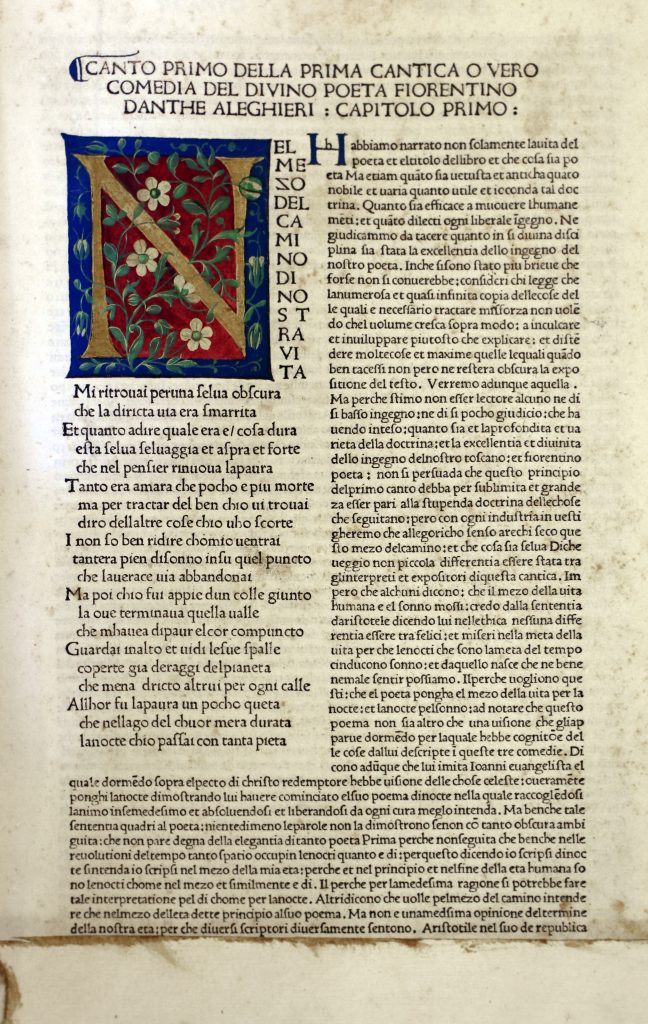 CANTO PRIMO DELLA PRIMA CANTICA O VERO
COMEDIA DEL DIVINO POETA FIORENTINO
DANTHE ALEGHIERI : CAPITOLO PRIMO :
N
EL
ME
ZO
DEL
CA
MI
NO
DI
NO
S T
RA
VI
TA
Mi ritrouai peruna selua obscura
che la diricta uia era smarrita
Et quanto adire quale era e/ cosa dura
esta selua seluaggia et aspra et forte
che nel pensier rinuoua lapaura
Tanto era amara che pocho e piu morte
ma per tractar del ben chio ui trouai
diro dellaltre cose chio uho scorte
I non so ben ridire chomio uentrai
tantera pien disonno insu quel puncto
che lauerace uia abbandonai
Ma poi chio fui appie dun colle giunto
la oue terminaua quella ualle
che mhauea dipaur el cor compuncto
Guardai inalto et uidi lesue spalle
coperte gia deraggi delpianeta
che mena dricto altrui per ogni calle
Allhor fu lapaura un pocho queta
che nellago del chuor mera durata
lanocte chio passai con tanta pieta
Habbiamo narrato non solamente lauita del
poeta et eltitolo dellibro et che cosa sia po
eta Ma etiam quãto sia uetusta et anticha quato
nobile et uaria quanto utile et ioconda tal doc
trina. Quanto sia efficace a muouere lhumane
mẽti; et quãto dilecti ogni liberale ĩgegno. Ne
giudicammo da tacere quanto in si diuina disci
plina sia stata la excellentia dello ingegno del
nostro poeta. Inche sisono stato piu brieue che
forse non si conuerebbe; consideri chi legge che
lanumerosa et quasi infinita copia dellecose del
le quali e necessario tractare missforza non uolẽ
do chel uolume cresca sopra modo; a inculcare
et inuiluppare piutosto che explicare; et distẽ
dere moltecose et maxime quelle lequali quãdo
ben tacessi non pero ne restera obscura la expo
sitione del testo. Verremo adunque aquella .
Ma perche stimo non esser lectore alcuno ne di
si basso ingegno; ne di si pocho giudicio; che ha
uendo inteso; quanto sia et laprofondita et ua
rieta della doctrina; et la excellentia et diuinita
dello ingegno delnostro toscano; et fiorentino
poeta ; non si persuada che questo principio
delprimo canto debba per sublimita et grande
za esser pari alla stupenda doctrina dellechose
che seguitano; pero con ogni industria in uesti
gheremo che allegoricho senso arechi seco que
sto mezo delcamino; et che cosa sia selua Diche
ueggio non piccola differentia essere stata tra
glinterpreti et expositori diquesta cantica. Im
pero che alchuni dicono; che il mezo della uita
humana e el sonno mossi; credo dalla sententia
daristotele dicendo lui nellethica nessuna diffe
rentia essere tra felici; et miseri nella meta della
uita per che lenocti che sono lameta del tempo
cinducono sonno; et daquello nasce che ne bene
nemale sentir possiamo. Ilperche uogliono que
sti; che el poeta pongha el mezo della uita per la
nocte; et lanocte pelsonno; ad notare che questo
poema non sia altro che una uisione che gliap
parue dormẽdo per laquale hebbe cognitiõe del
le cose dallui descripte ĩ queste tre comedie. Di
cono adũque che lui imita Ioanni euangelista el
quale dormẽdo sopra elpecto di christo redemptore hebbe uisione delle chose celeste; oueramẽte
ponghi lanocte dimostrando lui hauere cominciato elsuo poema dinocte nella quale raccoglẽdosi
lanimo insemedesimo et absoluendosi et liberandosi da ogni cura meglo intenda. Ma benche tale
sententia quadri al poeta; nientedimeno leparole non la dimostrono senon cõ tanto obscura ambi
guita; che non pare degna della elegantia ditanto poeta Prima perche nonseguita che benche nelle
reuolutioni deltempo tanto spatio occupin lenocti quanto e di; perquesto dicendo io scripsi dinoc
te sintenda io scripsi nel mezo della mia eta; perche et nel principio et nelfine della eta humana so
no lenocti chome nel mezo et similmente e di. Il perche per lamedesima ragione si potrebbe fare
tale interpretatione pel di chome per lanocte. Altridicono che uolle pelmezo del camino intende
re che nelmezo delleta dette principio alsuo poema. Ma non e unamedesima opinione deltermine
della nostra eta; per che diuersi scriptori diuersamente sentono. Aristotile nel suo de republica